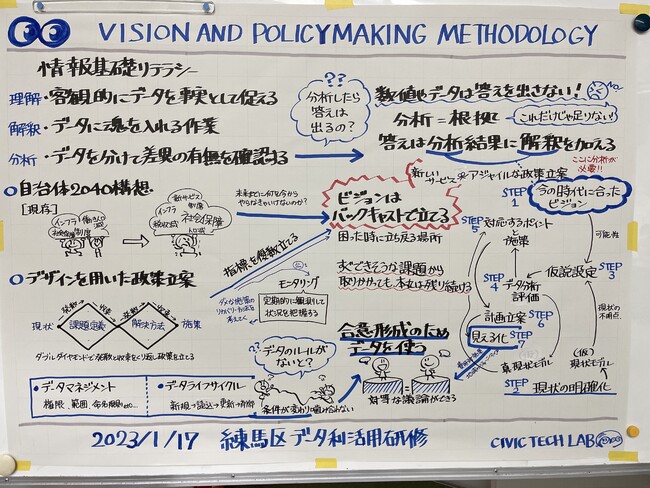 VISION AND POLICYMAKING METHODOLOGY
情報基礎リテラシー
理解・客観的にデータを事実として捉える
解釈・データに魂を入れる作業
分析・データを分けて差異の有無を確認する
??
分析したら
答えは
出るの?
数値やデータは答えを出さない!
分析=根拠
これだけじゃ足りない!
答えは分析結果に解釈を加える
ここに分析が
必要!!
○自治体2040構想・
[現存]
インフラ
働き手減
社会保障
制度
新サービス
制度
インフラ
税収減
社会保障
人口減
未来までに何を今から
やらなきゃいけないのか?
ビジョンは
バックキャストで立てる
困った時に立ち戻る場所
すぐできそうな課題から
取りかかっても、本丸は残り続ける
新しい
サービスやアジャイルな政策立案
STEP
1
今の時代に合った
ビジョン
可能性
STEP
5
対応するポイント
と施策
仮説設定
STEP
3
STEP
4
データ分析
評価
現状の
不明点
計画立案
STEP
6
見える化
STEP
7
真現状モデル
(仮)
現状モデル
STEP
2
現状の明確化
○デザインを用いた政策立案
発散
収束
発散
収束
現状
課題定義
解決方法
施策
ダブルダイヤモンドで発散と収束をくり返し政策を立てる
指標を複数立てる
モニタリング
定期的に観測して
状況を把握する
ダメな施策の
リカバリー方法を
考えておく
合意形成のため
データを使う
対等な議論ができる
??
データのルールが
ないと?
条件が変わり噛み合わない
・データマネジメント
権限、範囲、命名規則etc..
・データライフサイクル
新規→読込→更新→削除
2023/1/17 練馬区データ利活用研修
CIVIC TECH LAB